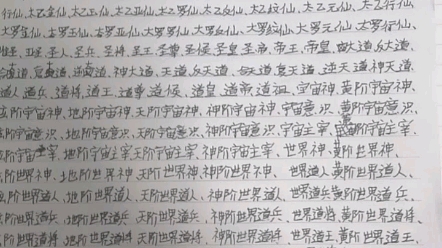 行仙、太乙金仙、太乙玉仙、太乙亚仙、太乙罗仙、太乙反仙、太乙纹仙、太乙元仙、太乙行仙、
大罗金仙、大罗玉仙、大罗亚仙、大罗罗仙、大罗反仙、大罗纹仙、大罗元仙、大罗行仙、
亚圣、圣人、圣兵、圣将、圣王、圣尊、圣侯、圣皇、圣帝、帝王、帝皇、大道、反大道、
大道、逆大道、神大道、天道、反天道、天道、天道、逆天道、神天道、
道人、道兵、道将、道王、道尊、道侯、道皇、道帝、道祖、宇宙神、黄阶宇宙神、
阶宇宙神、地阶宇宙神、天阶宇宙神、神阶宇宙神、宇宙意识、黄阶宇宙意识、
阶宇宙意识、地阶宇宙意识、天阶宇宙意识、神阶宇宙意识、宇宙主宰、黄阶宇宙主宰、
阶宇宙主宰、地阶宇宙主宰、天阶宇宙主宰、神阶宇宙主宰、世界神、黄阶世界神、
阶世界神、地阶世界神、天阶世界神、神阶世界神、世界道人、黄阶世界道人、
阶世界道人、地阶世界道人、天阶世界道人、神阶世界道人、世界道兵、黄阶世界道兵、
阶世界道兵、地阶世界道兵、天阶世界道兵、神阶世界道兵、世界道将、黄阶世界道将、
阶世界道将、地阶世界道将、天阶世界道将、神阶世界道将、世界道王、黄阶世界道王、